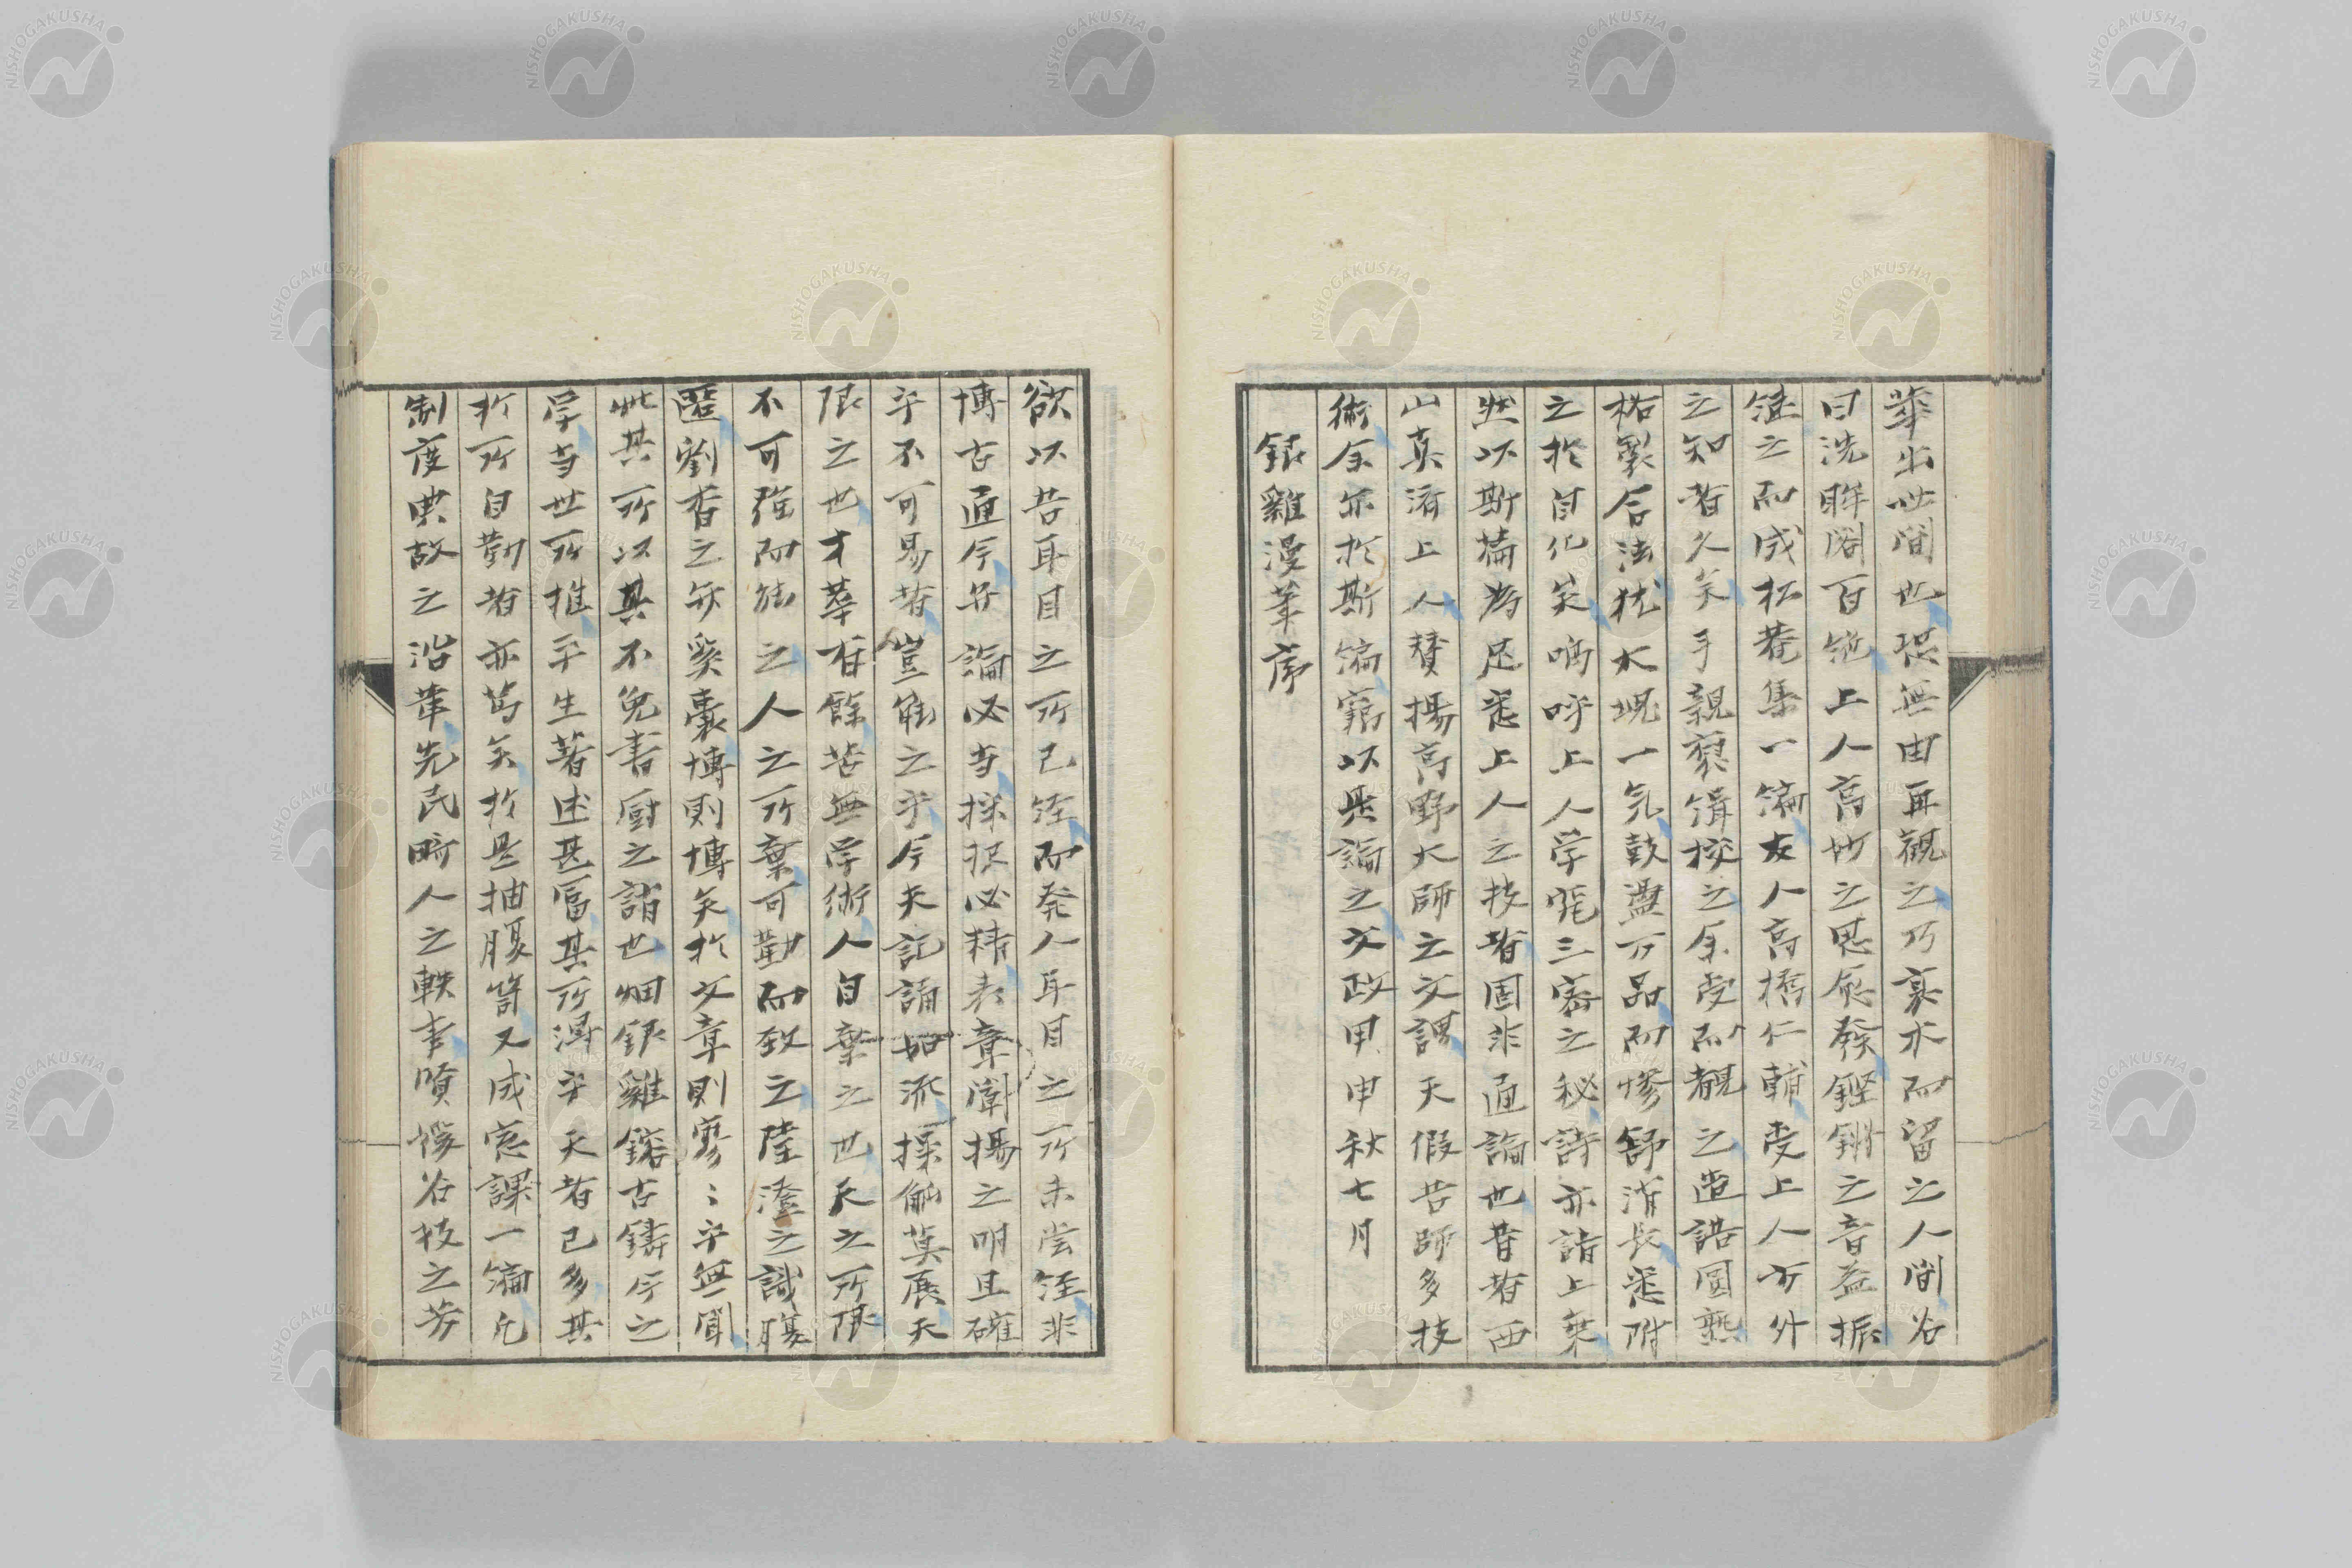 華出此間也恐無由再観之乃裒木而留之人間谷
曰洗眸閣百絶上人高妙之思愈発鏗鏘之音益振
継之而成松菴集一編友人高橋仁輔受上人方外
之知者久矣手親裒緝校之余受而観之造詣圓熟
格製合法犹大塊一気鼓盪万品而惨舒消長悉附
之於自化矣嗚呼上人学究三密之秘詩亦詣上乗
然以斯編為足悉上人之技者固非通論也昔者西
山真済上人賛揚高野大師之文謂天假吾師多技
術余亦於斯編竊以是論之文政甲申秋七月
銀雞漫筆序
欲以吾耳目之所已経而発人耳目之所未嘗経非
博古通今弁論必当採択必精表章闡揚之明且確
乎不可易者豈能之乎今夫記誦如流操觚莫展天
限之也才華有餘苦無学術人自棄之也天之所限
不可強而能之人之所棄可勤而致之陸澄之誠腹
匿劉杳之弁奚嚢博則博矣於文章則寥〻乎無聞
此其所以其不免書厨之誚也畑銀雞鎔古鋳今之
学当世所推平生著述甚富其所得乎天者已多其
於所自勤者亦篤矣於是抽腹笥又成窓課一編凡
制度典故之沿革先民疇人之軼事嘖噪谷技之芳